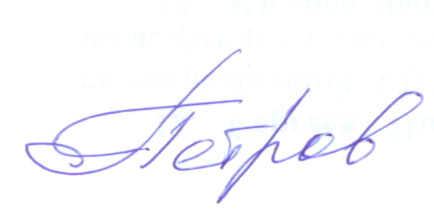 Петров